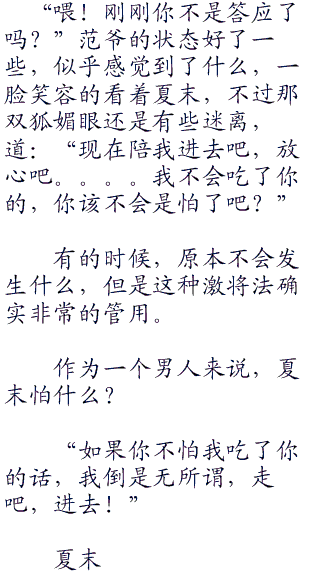 “喂！刚刚你不是答应了
吗？”范爷的状态好了一
些，似乎感觉到了什么，一
脸笑容的看着夏末，不过那
双狐媚眼还是有些迷离，
道：“现在陪我进去吧，放
心吧。。。。我不会吃了你
的，你该不会是怕了吧？”
有的时候，原本不会发
生什么，但是这种激将法确
实非常的管用。
作为一个男人来说，夏
末怕什么？
“如果你不怕我吃了你
的话，我倒是无所谓，走
吧，进去！”
夏末